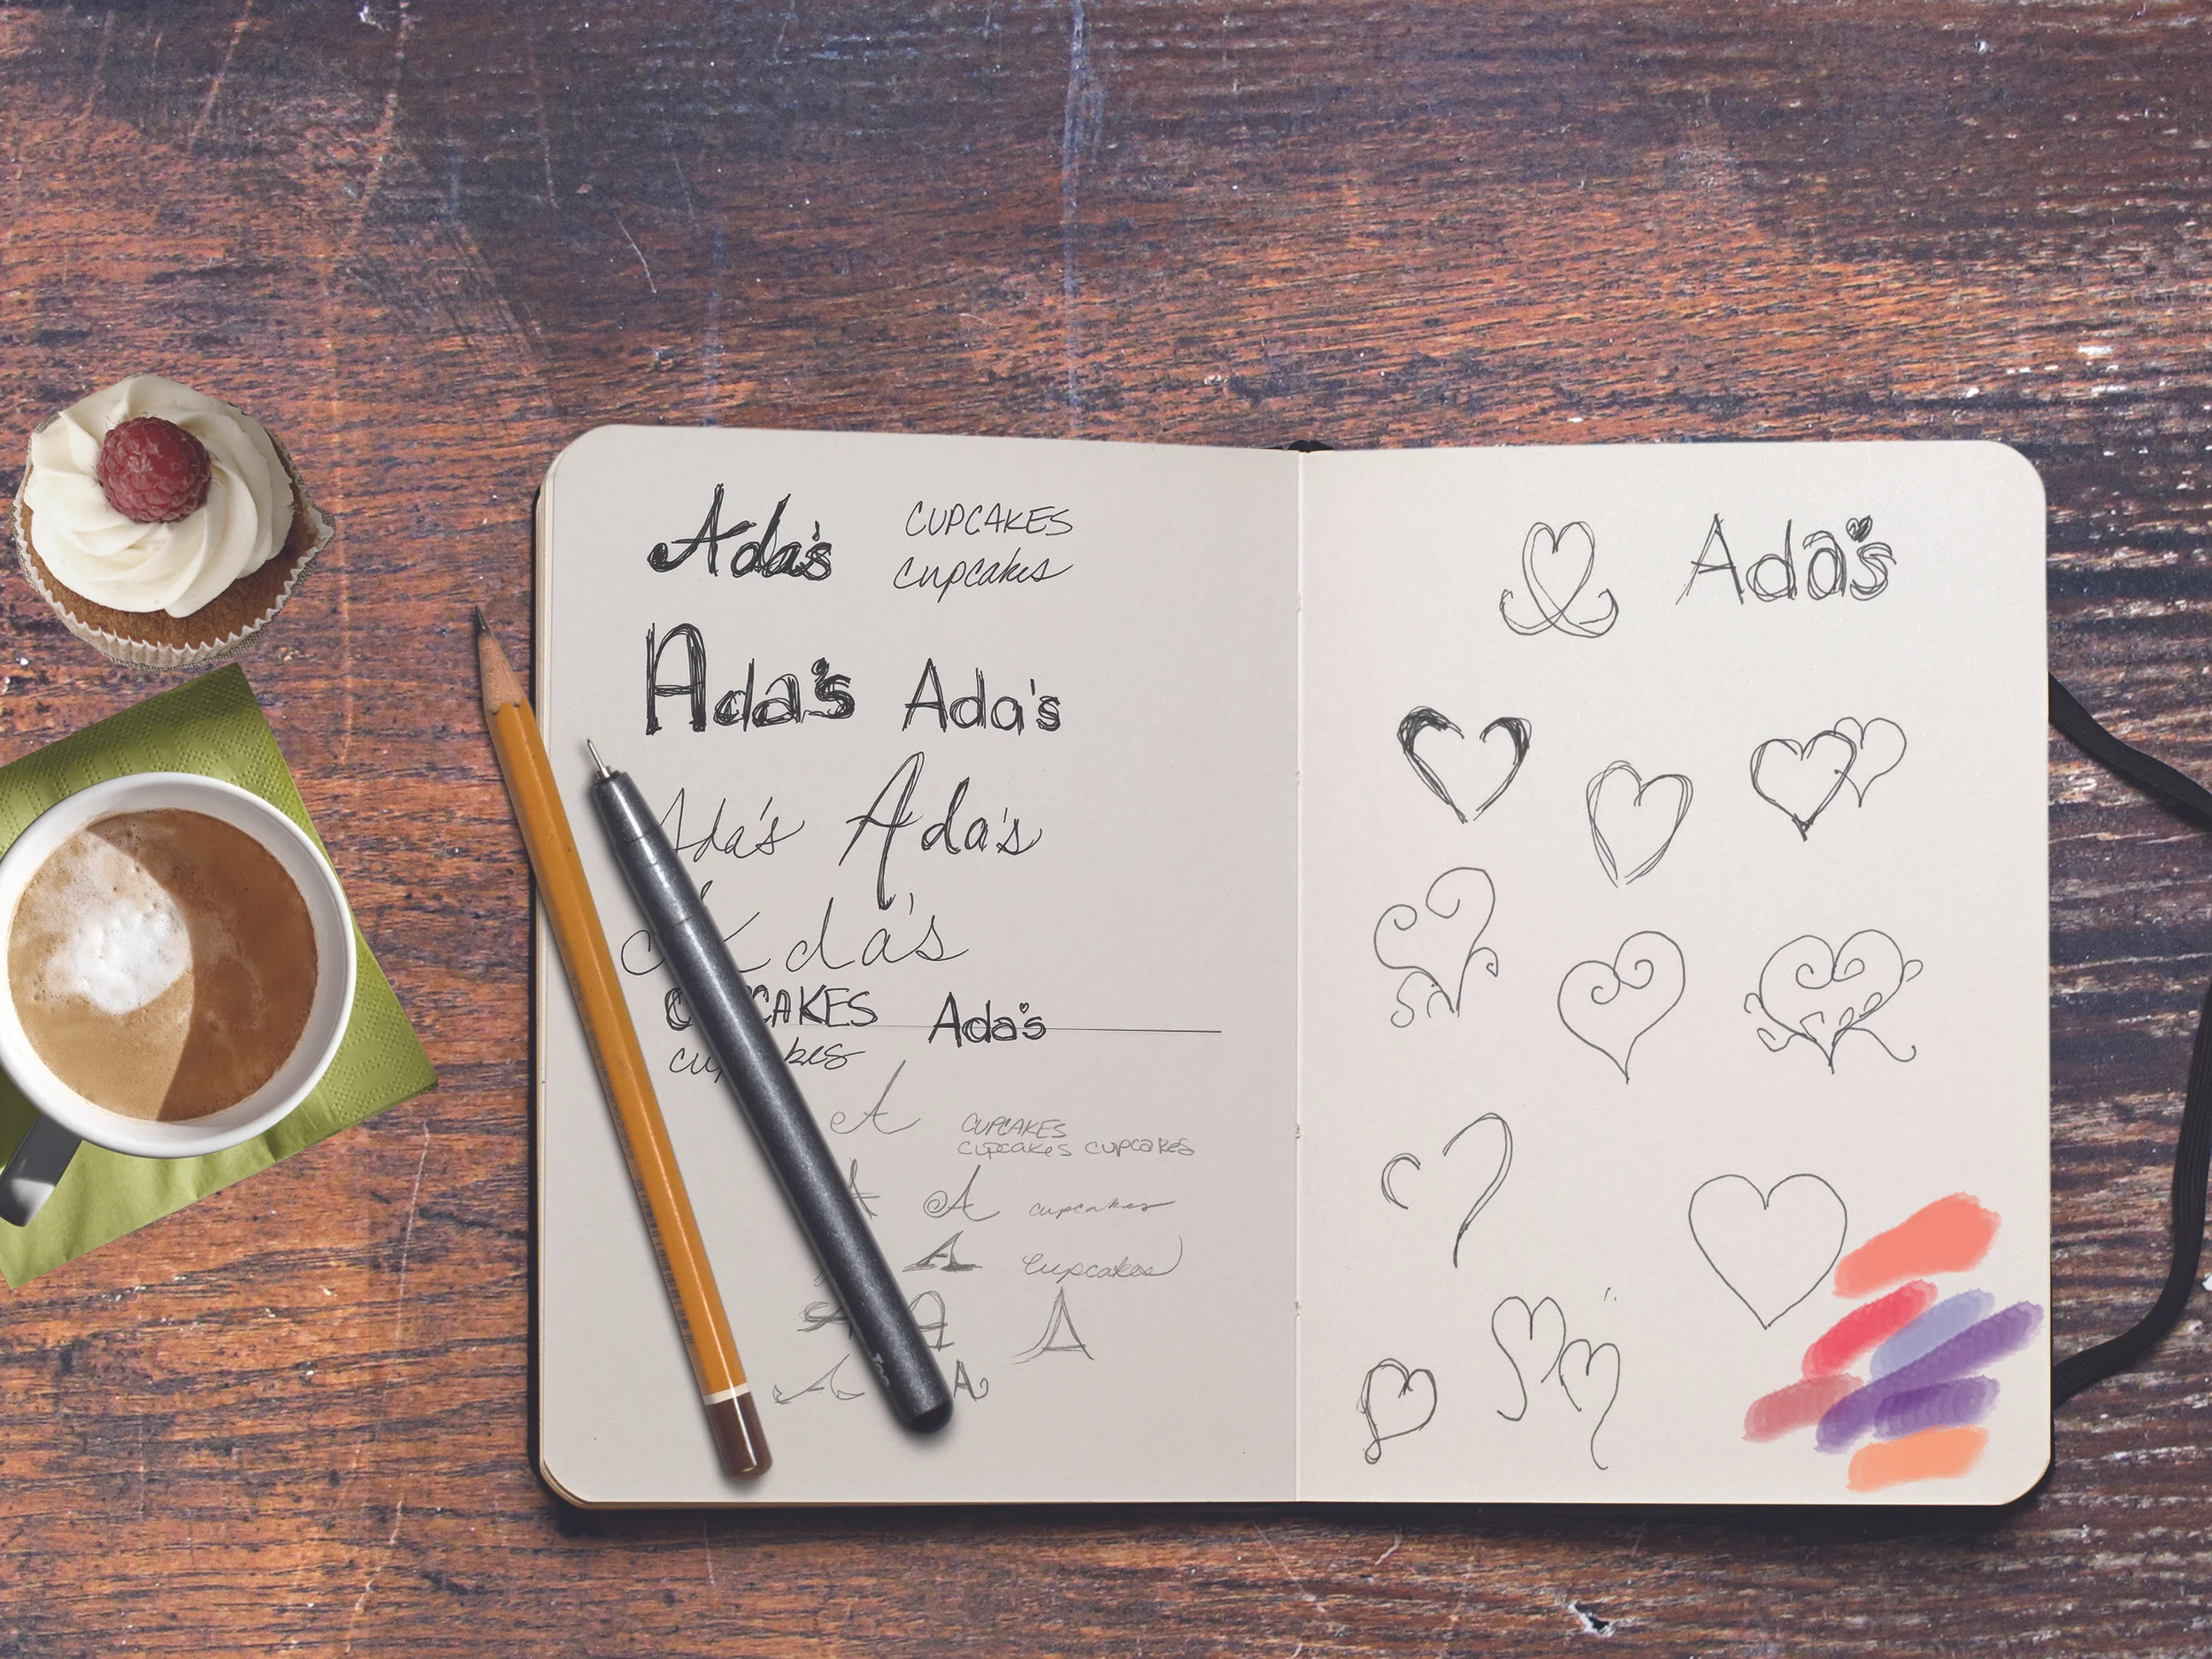 Ada's CUPCAKES
cupcakes
Ada's Ada's
Ada's Ada's
Ada's
CUPCAKES Ada's
cupcakes
A CUPCAKES
cupcakes cupcakes
A A cupcakes
A cupcakes
A A A
A A
Ada's